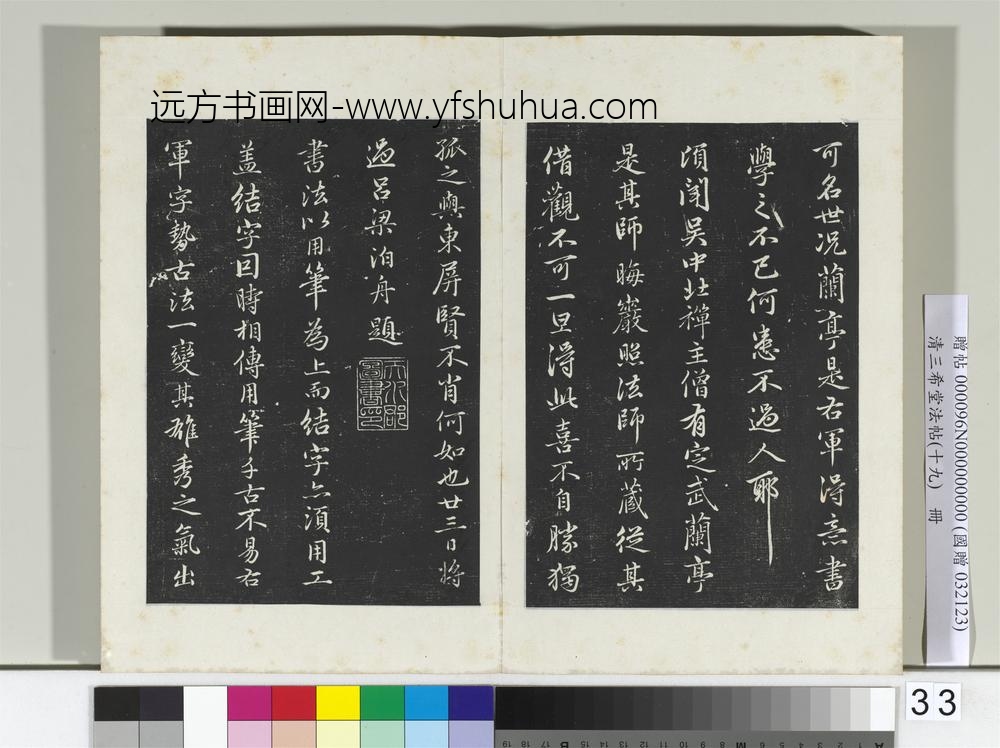 远方书画网-www.yfshuhua.com
可名世况蘭亭是右軍得意書
學之不已何患不過人耶
頃聞吳中北禪主僧有定武蘭亭
是其師晦巖照法師所藏從其
借觀不可一旦得此喜不自勝獨
孤之與東屏賢不肖何如也廿三日將
過呂梁泊舟題
書法以用筆為上而結字亦須用工
盖結字因時相傳用筆千古不易右
軍字勢古法一變其雄秀之氣出
贈帖 000096N000000000 (國贈 032123)
清三希堂法帖(十九) 冊
33